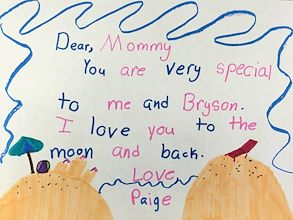 Dear, Mommy
You are very special
to me and Bryson.
I love you to the
moon and back.
Love
Paige